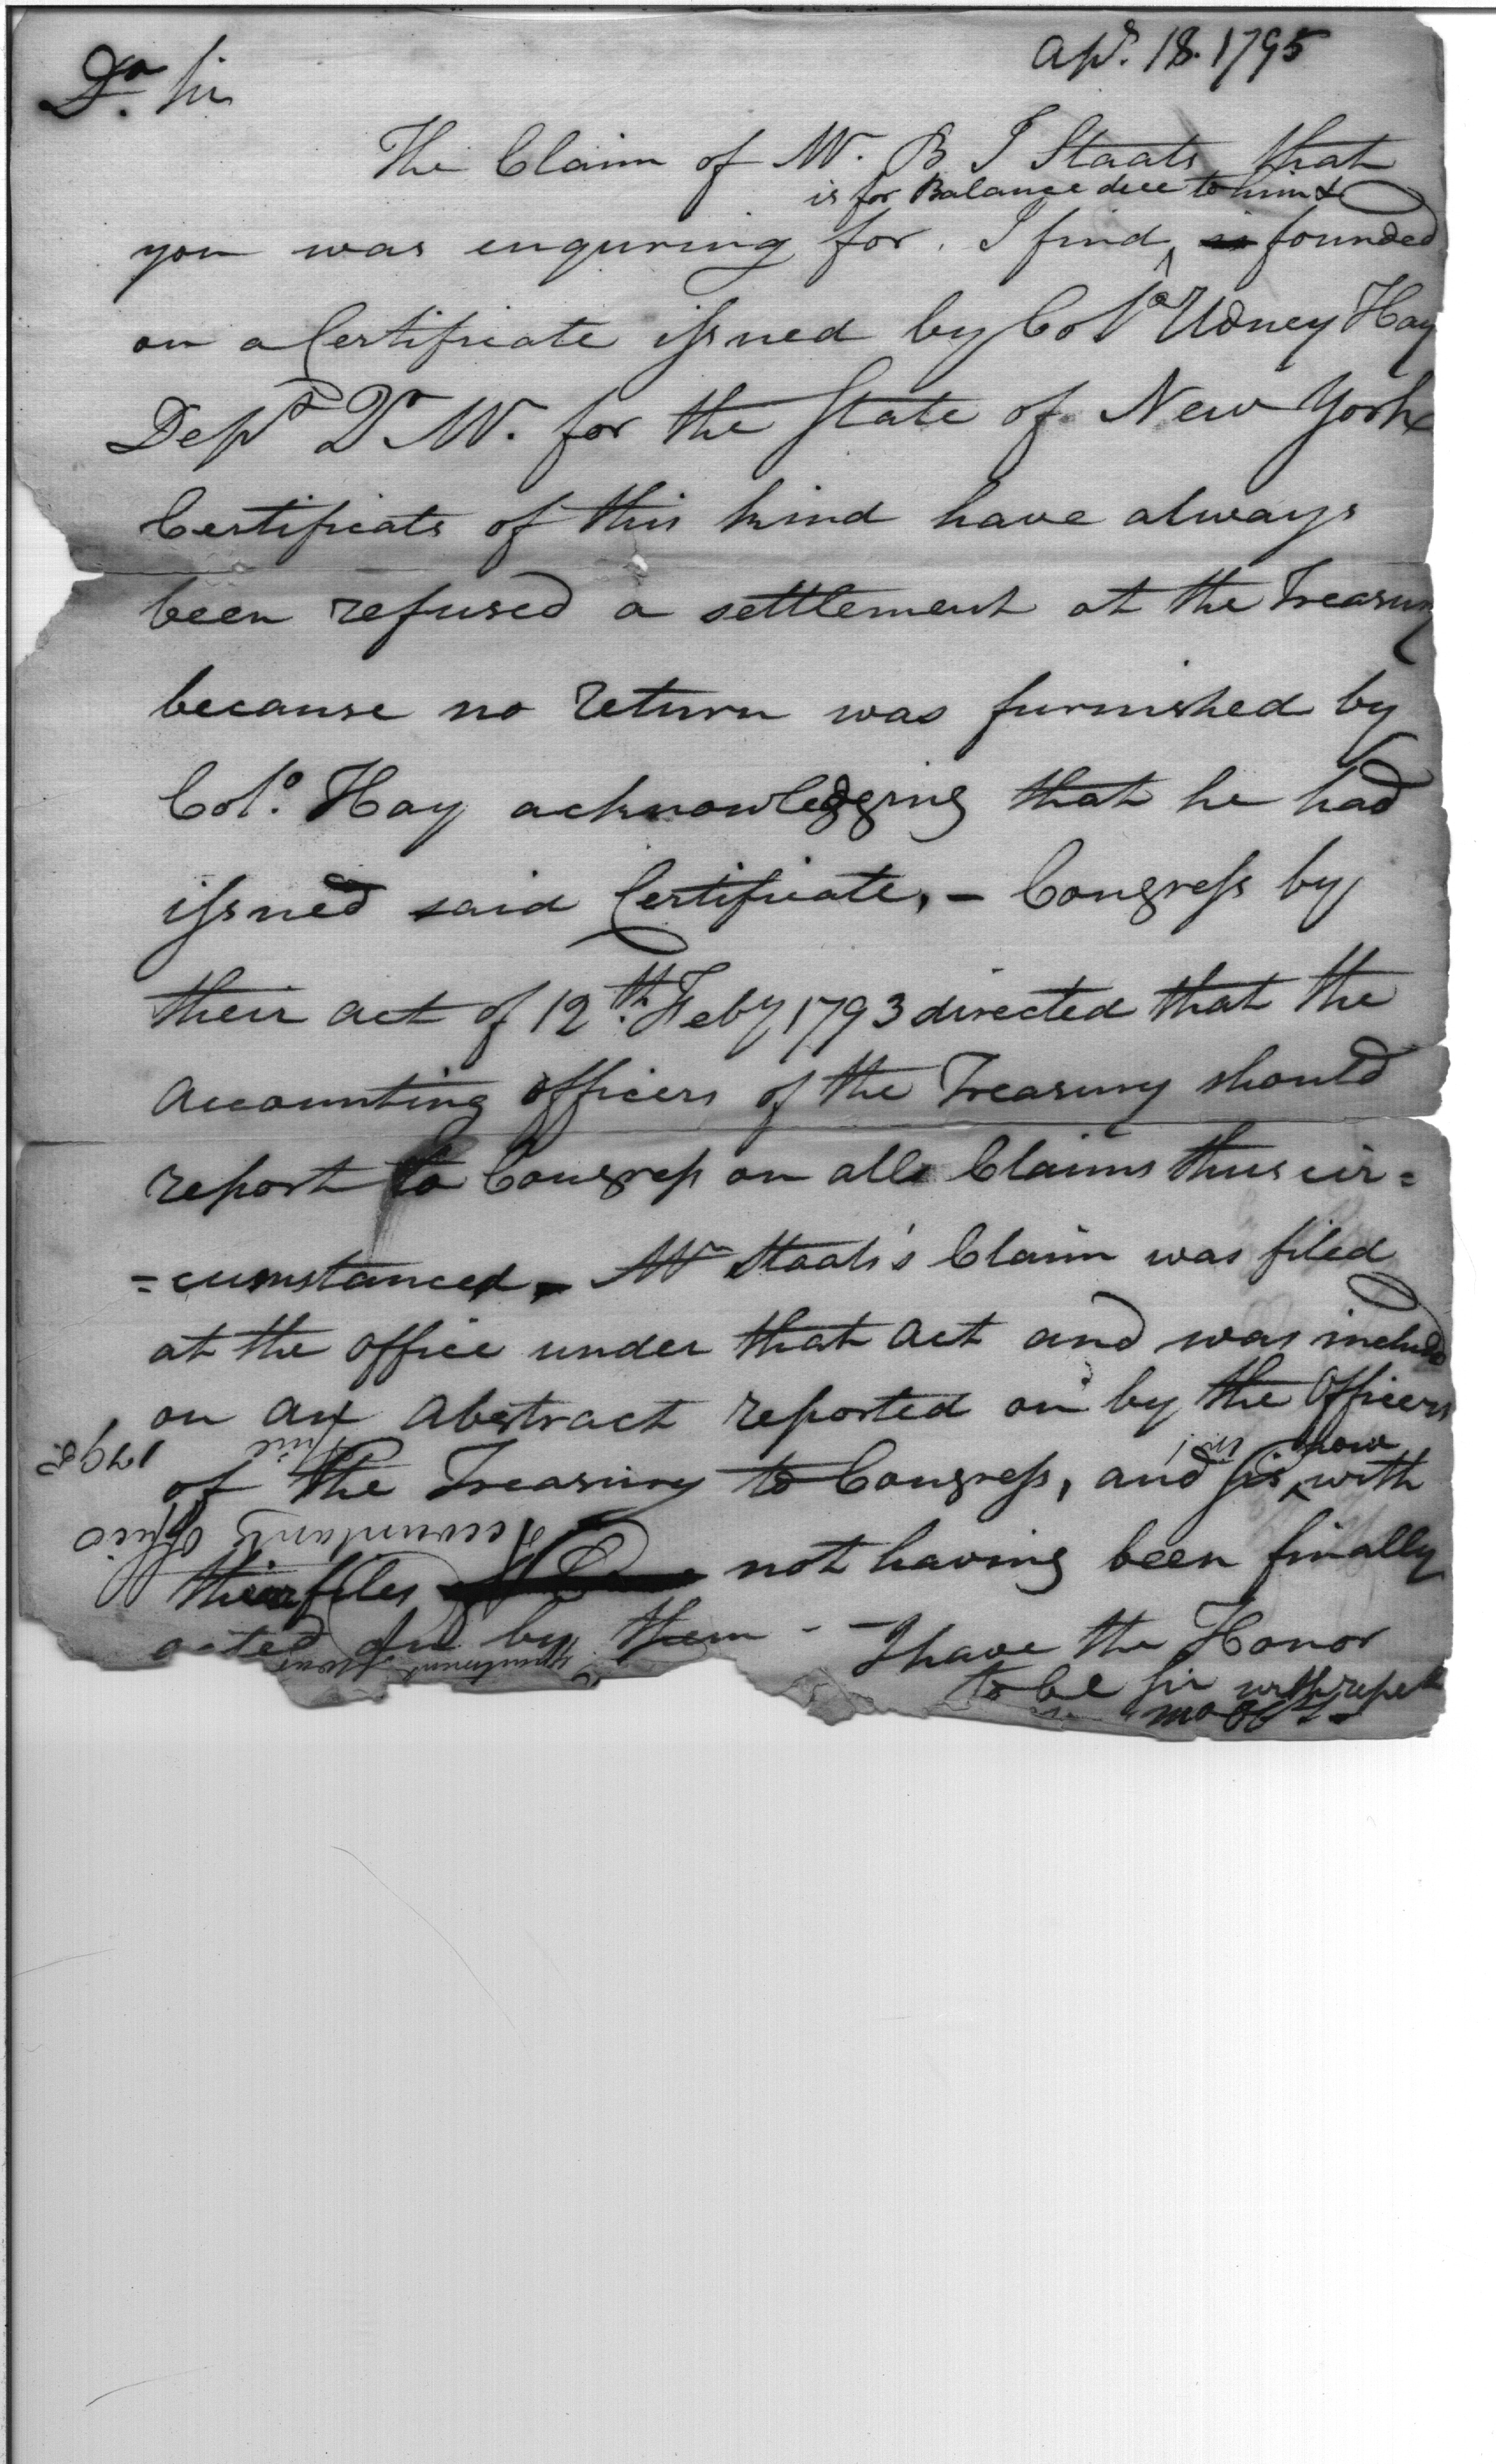 Apr. 18. 1795
Dr. Sir
The Claim of Mr. B J Staats that
is for Balance due to him &
you was enquring for. I find, is founded
on a Certificate issued by Colo Udney Hay
Depy Q. M. for the State of New York
Certificats of this kind have always
been refused a settlement at the Treasury
because no return was furnished by
Colo. Hay acknowledgeing that he had
issued said Certificate, - Congress by
their act of 12th. Feby 1793 directed that the
Accounting officers of the Treasury should
report to Congress on all Claims thus cir=
=cumstanced. - Mr Staats's Claim was filed
at the office under that act and was includd
on an Abstract reported on by the Officers
now
of the Treasury to Congress, and is with
their files not having been finally
acted on by them - - I have the Honor
to be Sir with respect
mo Obt
Accountants Office
1795